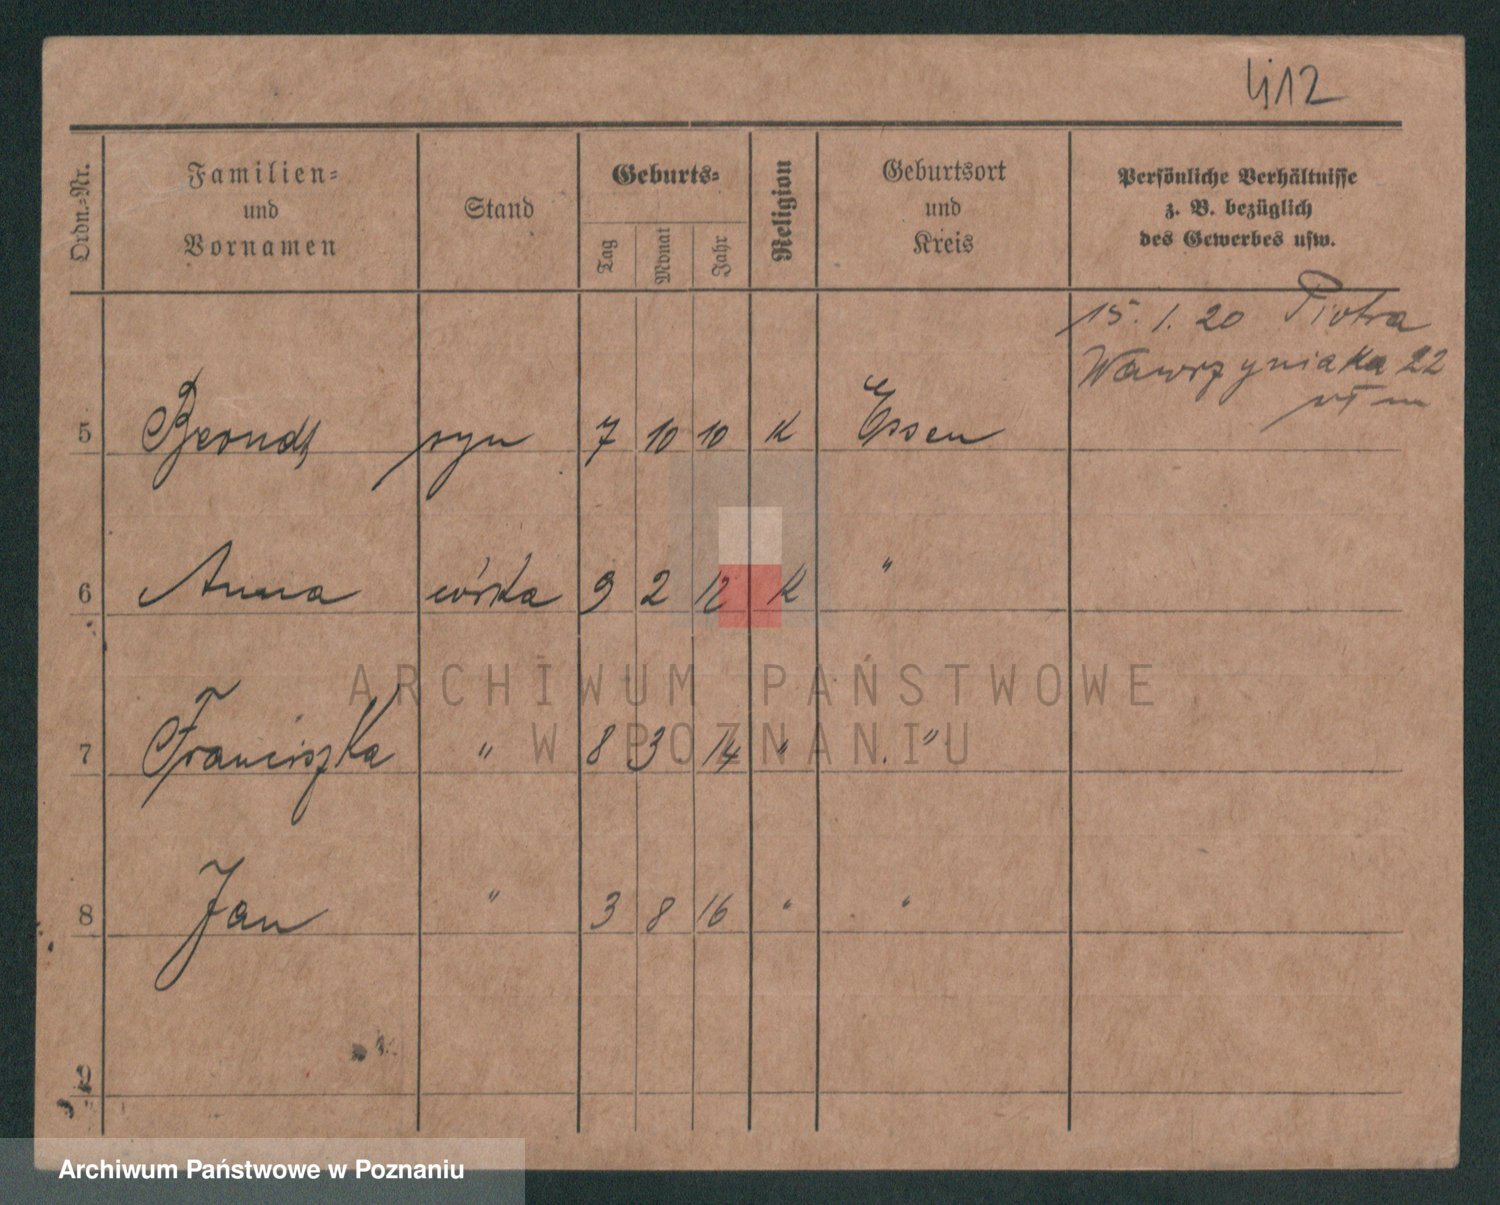 4/12
Ordn.-Nr.
Familien-
und
Vornamen
Stand
Geburts-
Tag
Monat
Jahr
Religion
Geburtsort
und
Kreis
Persönliche Verhältnisse
z. B. bezüglich
des Gewerbes usw.
15. 1. 20 Piotra
Wawrzyniaka 22
5 syn 7 10 10 K Essen
6 Anna córka 9 2 12 K "
7 Franciszka " 8 3 14 " "
8 Jan " 3 8 16 " "
9
ARCHIWUM PAŃSTWOWE
W POZNANIU
Archiwum Państwowe w Poznaniu